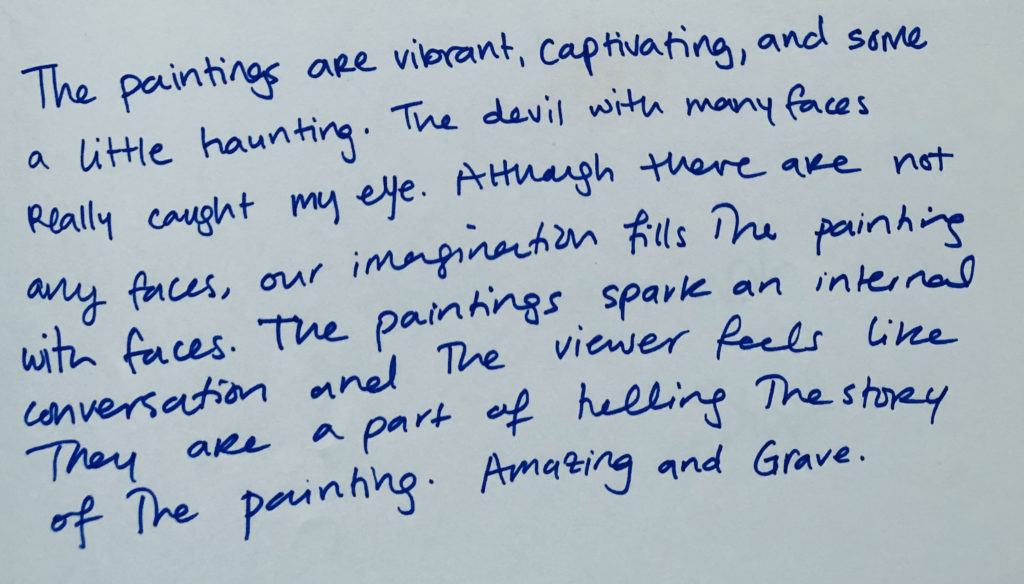 The paintings are vibrant, captivating, and some
a little haunting. The devil with many faces
Really caught my eye. Although there are not
any faces, our imagination fills The painting
with faces. The paintings spark an internal
conversation and The viewer feels like
They are a part of telling The story
of The painting. Amazing and Grave.